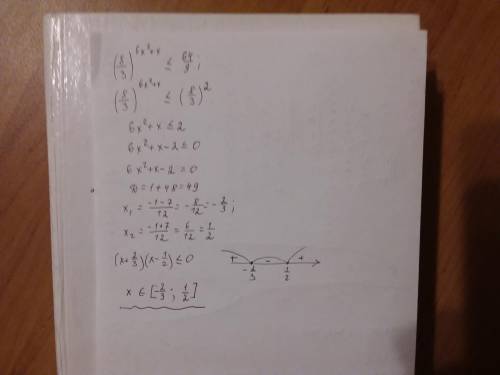 (8/3)^(6x²+x) ≤ 64/9;
(8/3)^(6x²+x) ≤ (8/3)²
6x²+x ≤ 2
6x²+x-2 ≤ 0
6x²+x-2 = 0
D = 1+48 = 49
x₁ = (-1-7)/12 = -8/12 = -2/3;
x₂ = (-1+7)/12 = 6/12 = 1/2
(x+2/3)(x-1/2) ≤ 0
+ - +
-2/3 1/2
x ∈ [-2/3; 1/2]